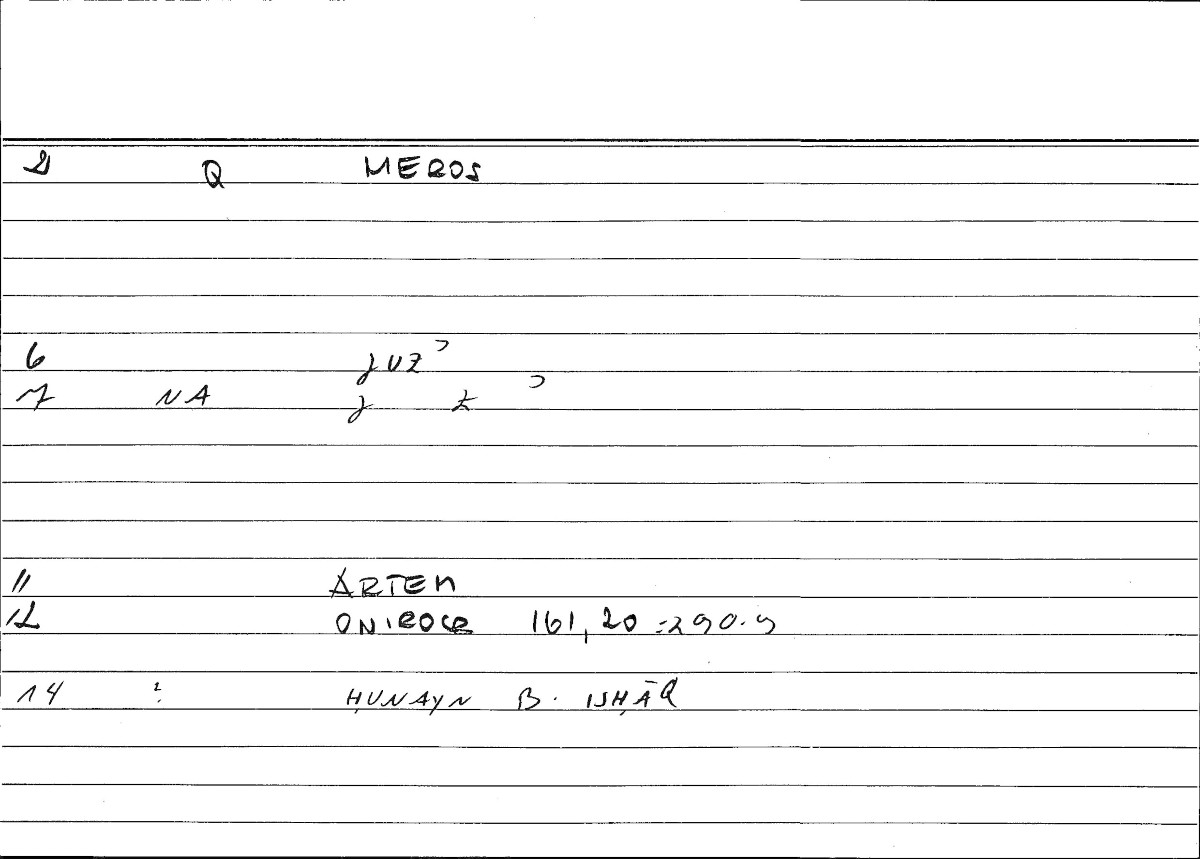 2 Q MEROS
6 ǧuzʾ
7 NA ǧ z ʾ
11 ARTEM
12 ONIROCR 161, 20 = 290.9
14 ? ḤUNAYN B. ISḤĀQ